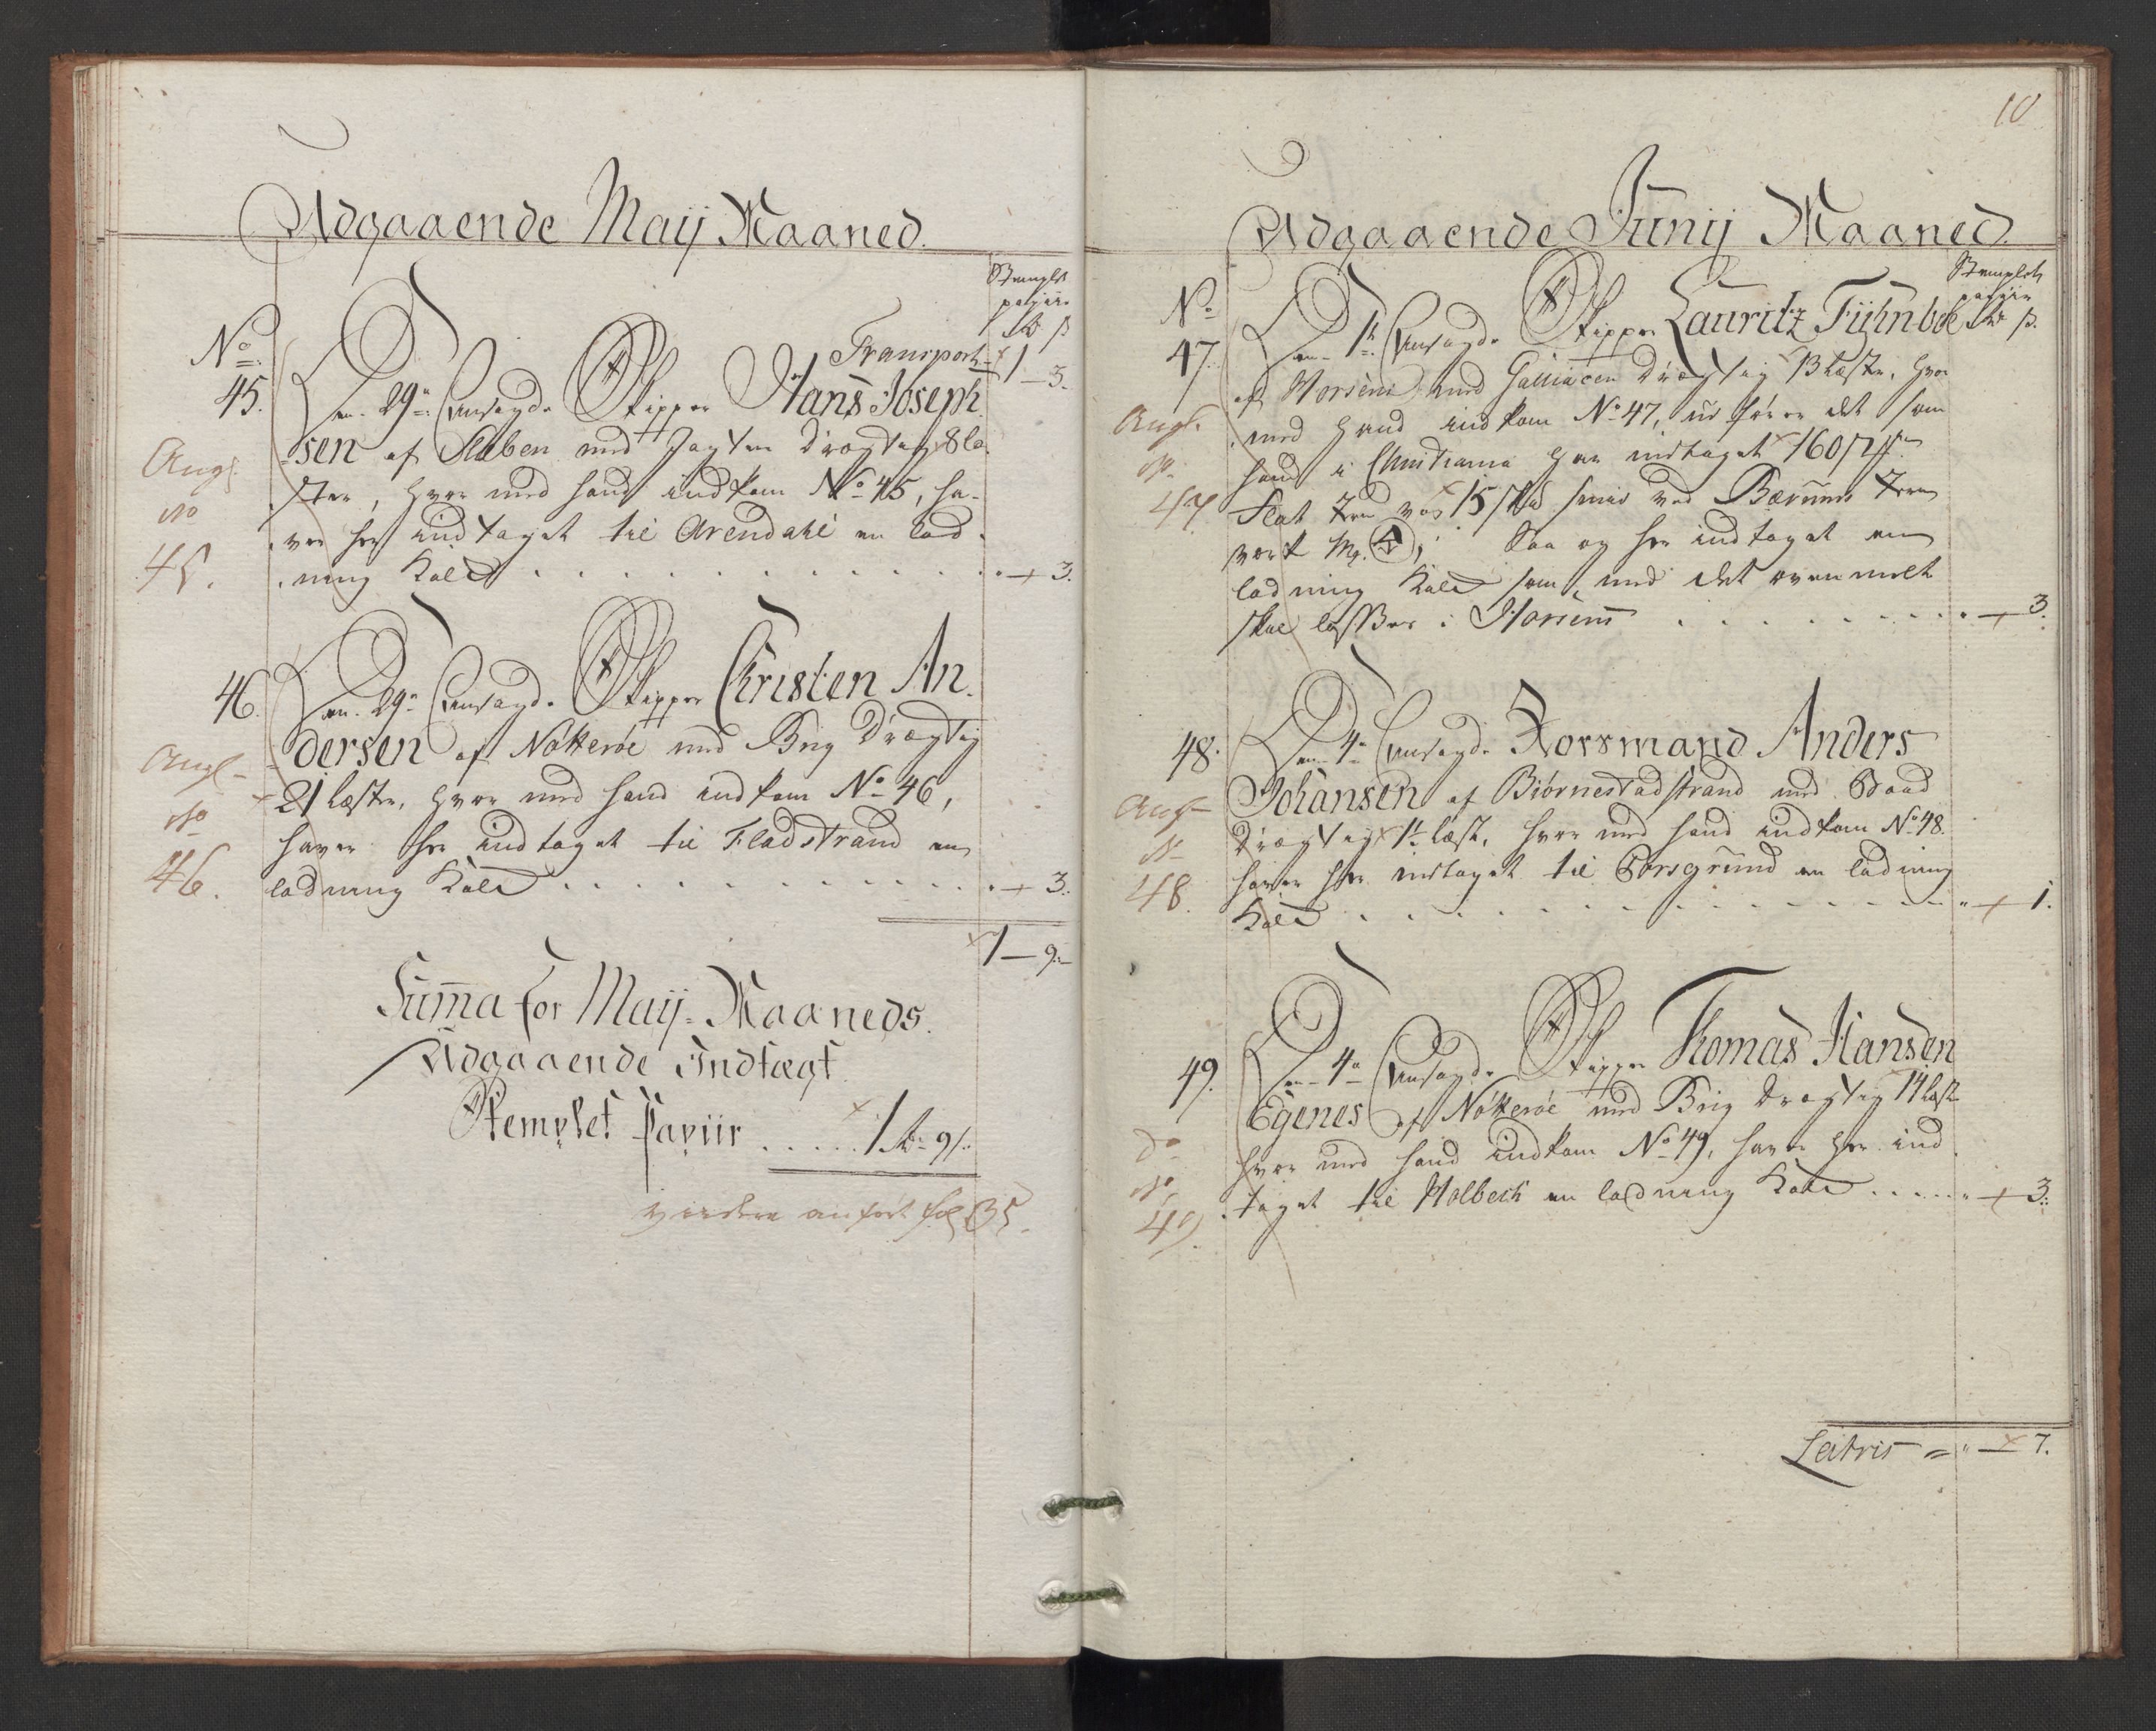 Udgaaende Maij Maaned.
Stemplet
papiir
Rd ß
No Transport 1 - 3.
45. Den 29de Clarerede Skipper Hans Joseph
sen af Staben med Jagten drægtig 8 læ
ster, hvor med hand indkom No 45, ha
ver her indtaget til Arendahl en lad
ning Kald . . . . . . . . 3.
Ang.
No
45.
46. Den 29de Skipper Christen An
dersen af Nötteröe med Brig drægtig
21 læster, hvor med hand indkom No 46,
haver her indtaget til Fladstrand en
ladning Kald . . . . . . . . 3.
Ang.
No
46.
1 - 9.
Suma for Maij Maaneds.
Udgaaende Indtægt
Stemplet Papiir . . . . . 1 Rd 9 ß
anført fol 35.
10
Udgaaende Junij Maaned.
Stemplet
papiir
Rd ß.
No
47. Den 1te Skipper Lauritz Fyhnboe
af Horsens med Galliacen drægtig 13 læster, hvor
med hand indkom No 47, udfører det som
hand i Christiania har indtaget 160
Flat Jern 15 ved Bærums Jern
verk Mq. Saa og her indtaget en
ladning Kald som med det ovenmelte
skal losses i Horsens . . . . . . . 3.
Ang.
No
47
48. Den 4de Norsmand Anders
Johansen af Biörnestadstrand med Baad
drægtig 1½ læst, hvor med hand indkom No 48.
haver her indtaget til Porsgrund en ladning
Kald . . . . . . . . 1.
Ang
No
48.
49. Den 4de Skipper Thomas Hansen
Egenes af Nötteröe med Brig drægtig 14 læst
hvor med hand indkom No 49, haver her ind
taget til Holbech en ladning Kald . . . . . 3.
Do
No
49.
Latris = " - 7.